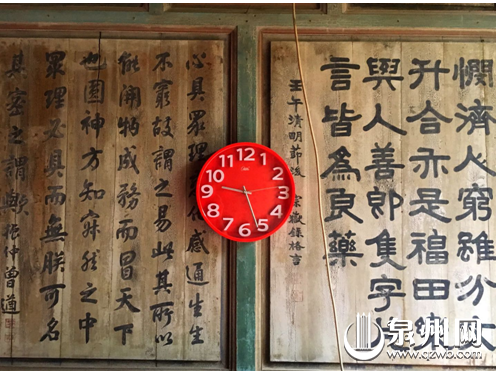 憫濟人窮雖分文
升合亦是福田樂
與人善即隻字
言皆為良藥
壬午清明節後 錄格言
心具眾理 化感通生生
不窮故謂之易此其所以
能開物成務而冒天下
也圓神方知寂然之中
眾理必具而無朕可名
其密之謂歟 振仲曾遒
12 1 2 3 4 5 6 7 8 9 10 11
泉州网
www.qzwb.com